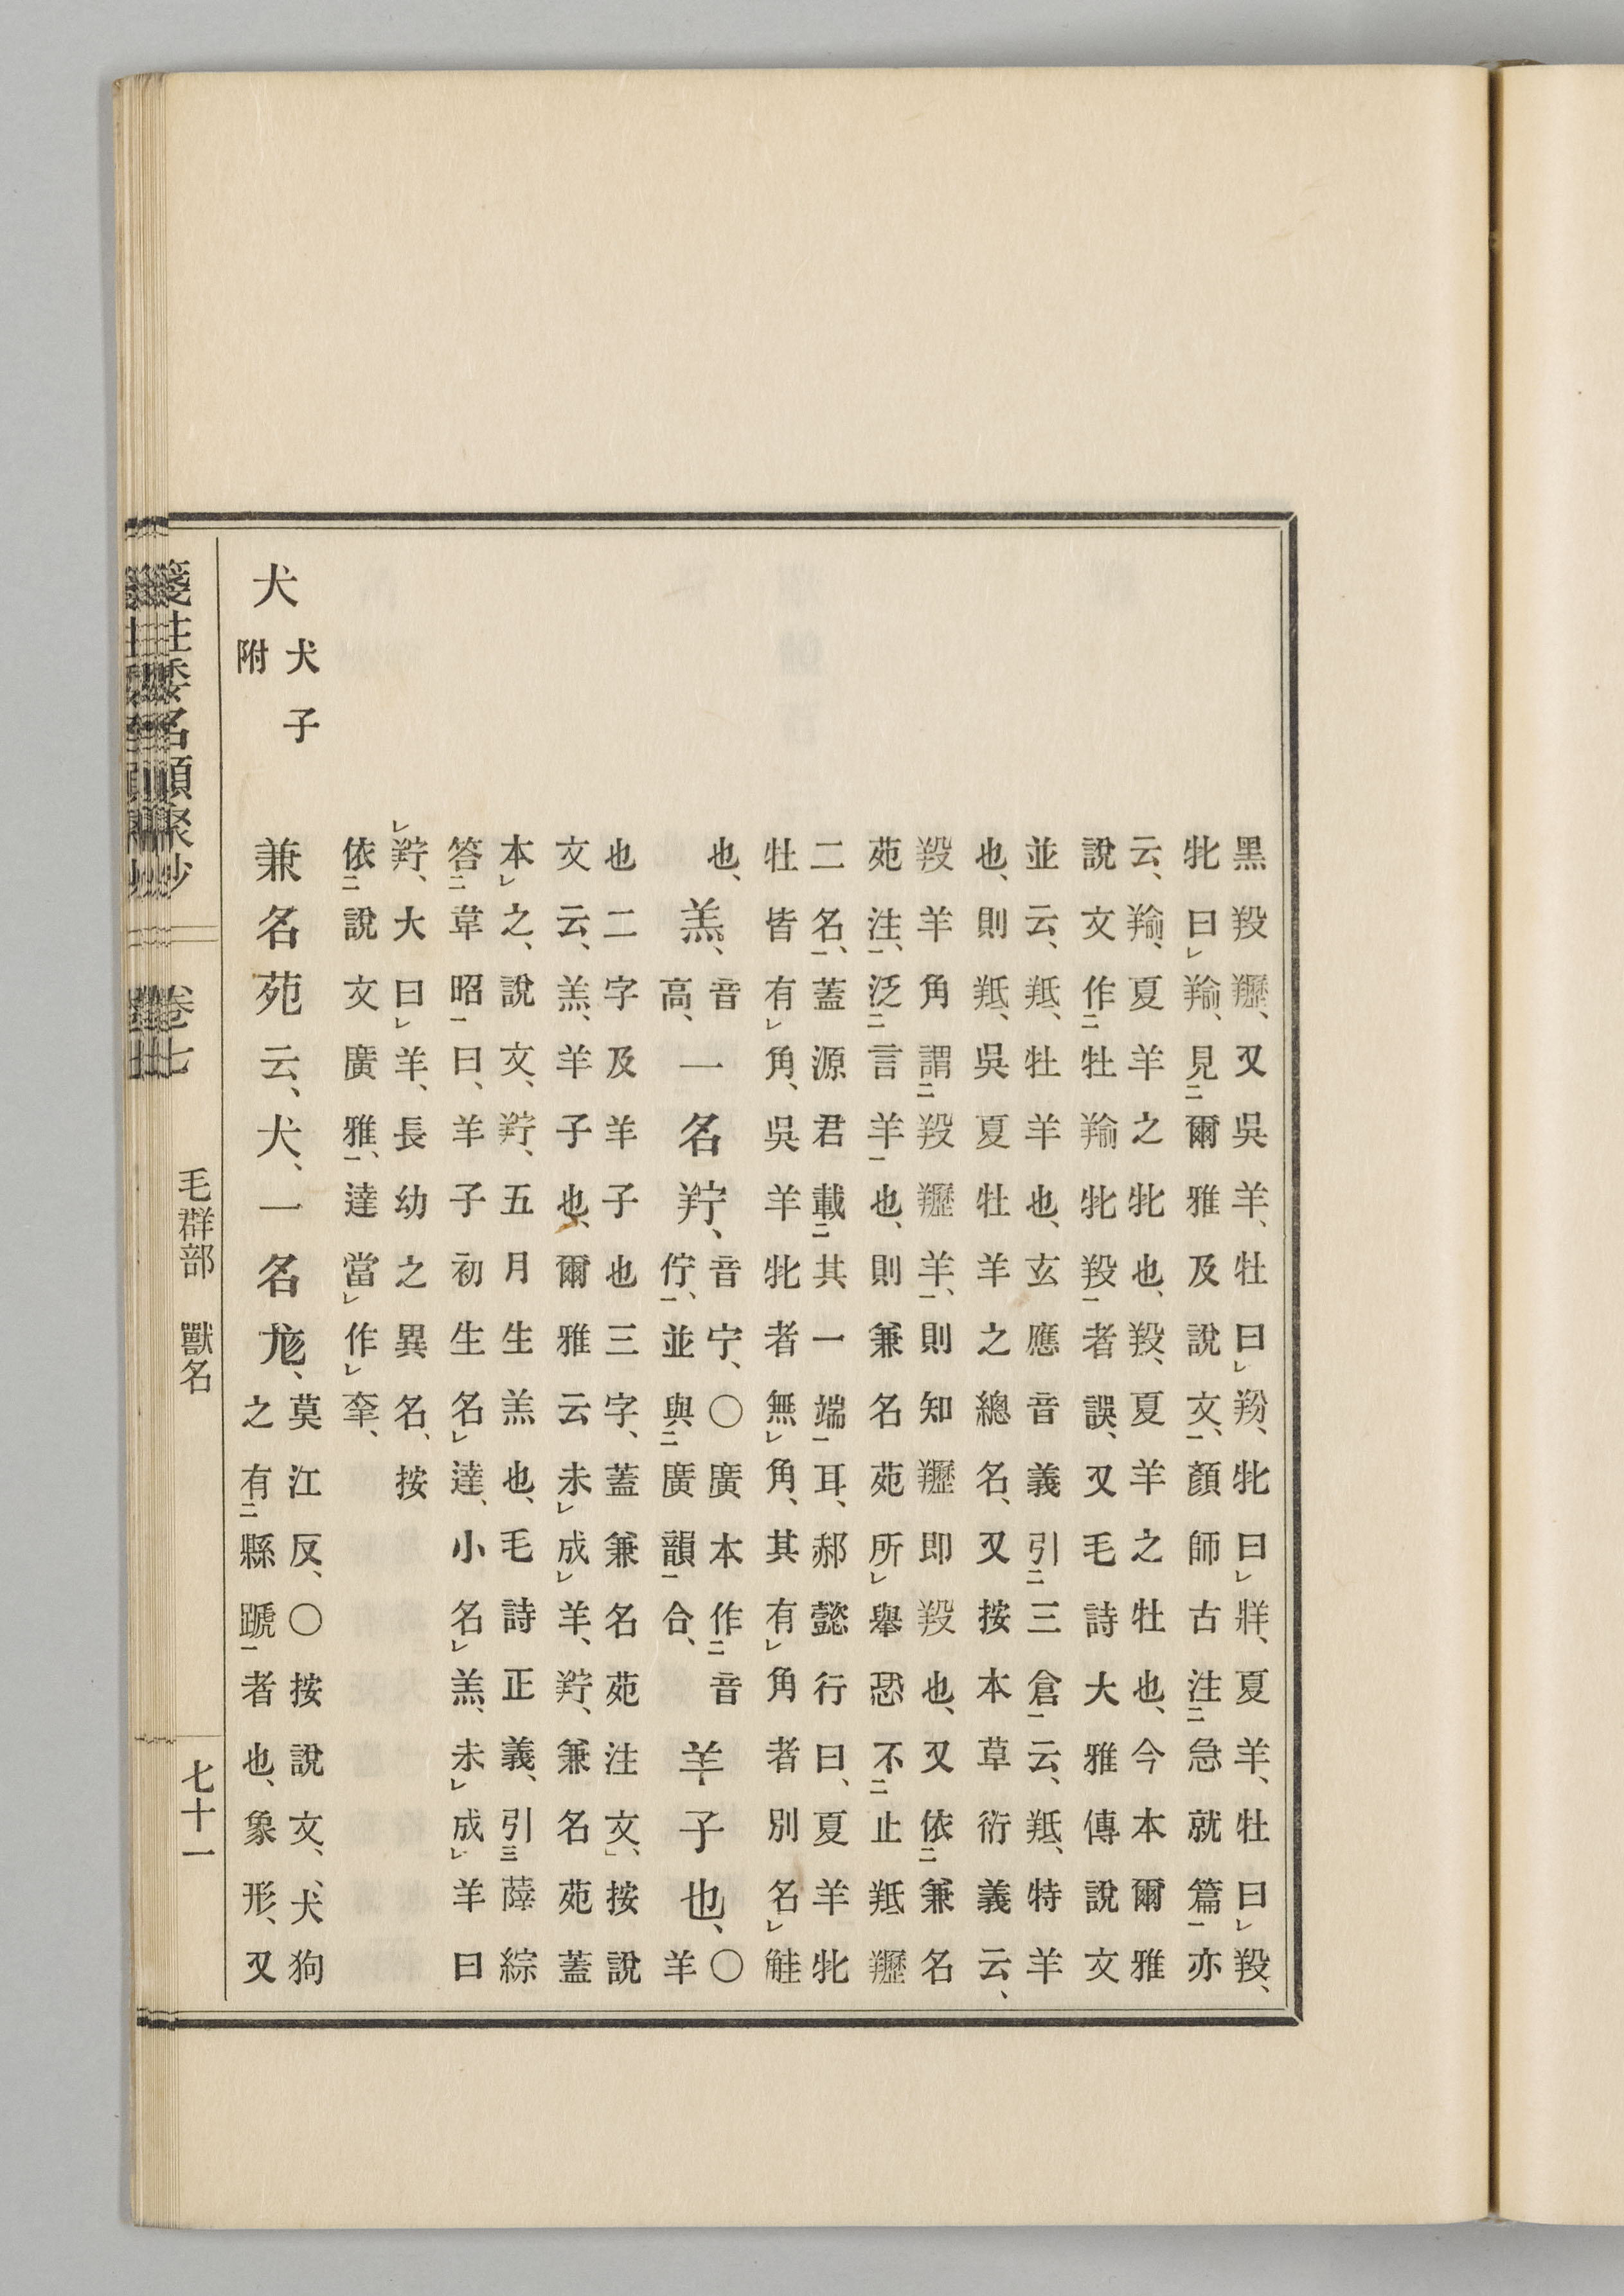 黑羖䍽、又吳羊、牡曰羒、牝曰牂、夏羊、牡曰羖、
牝曰羭、見爾雅及說文、顏師古注急就篇亦
云、羭、夏羊之牝也、羖、夏羊之牡也、今本爾雅
說文作牡羭牝羖者誤、又毛詩大雅傳說文
並云、羝、牡羊也、玄應音義引三倉云、羝、特羊
也、則羝、吳夏牡羊之總名、又按本草衍義云、
羖羊角謂羖䍽羊、則知䍽即羖也、又依兼名
苑注、泛言羊也、則兼名苑所擧恐不止羝䍽
二名、蓋源君載其一端耳、郝懿行曰、夏羊牝
牡皆有角、吳羊牝者無角、其有角者別名觟
也、
羔、音高、一名羜、音宁、○廣本作音佇、並與廣韻合、羊子也、○羊
也二字及羊子也三字、蓋兼名苑注文、按說
文云、羔、羊子也、爾雅云未成羊、羜、兼名苑蓋
本之、說文、羜、五月生羔也、毛詩正義、引薛綜
答韋昭曰、羊子初生名達、小名羔、未成羊曰
羜、大曰羊、長幼之異名、按
依說文廣雅、達當作羍、
犬 犬子附
兼名苑云、犬、一名尨、莫江反、○按說文、犬狗
之有縣蹏者也、象形、又
箋注倭名類聚抄 卷七 毛群部 獸名 七十一